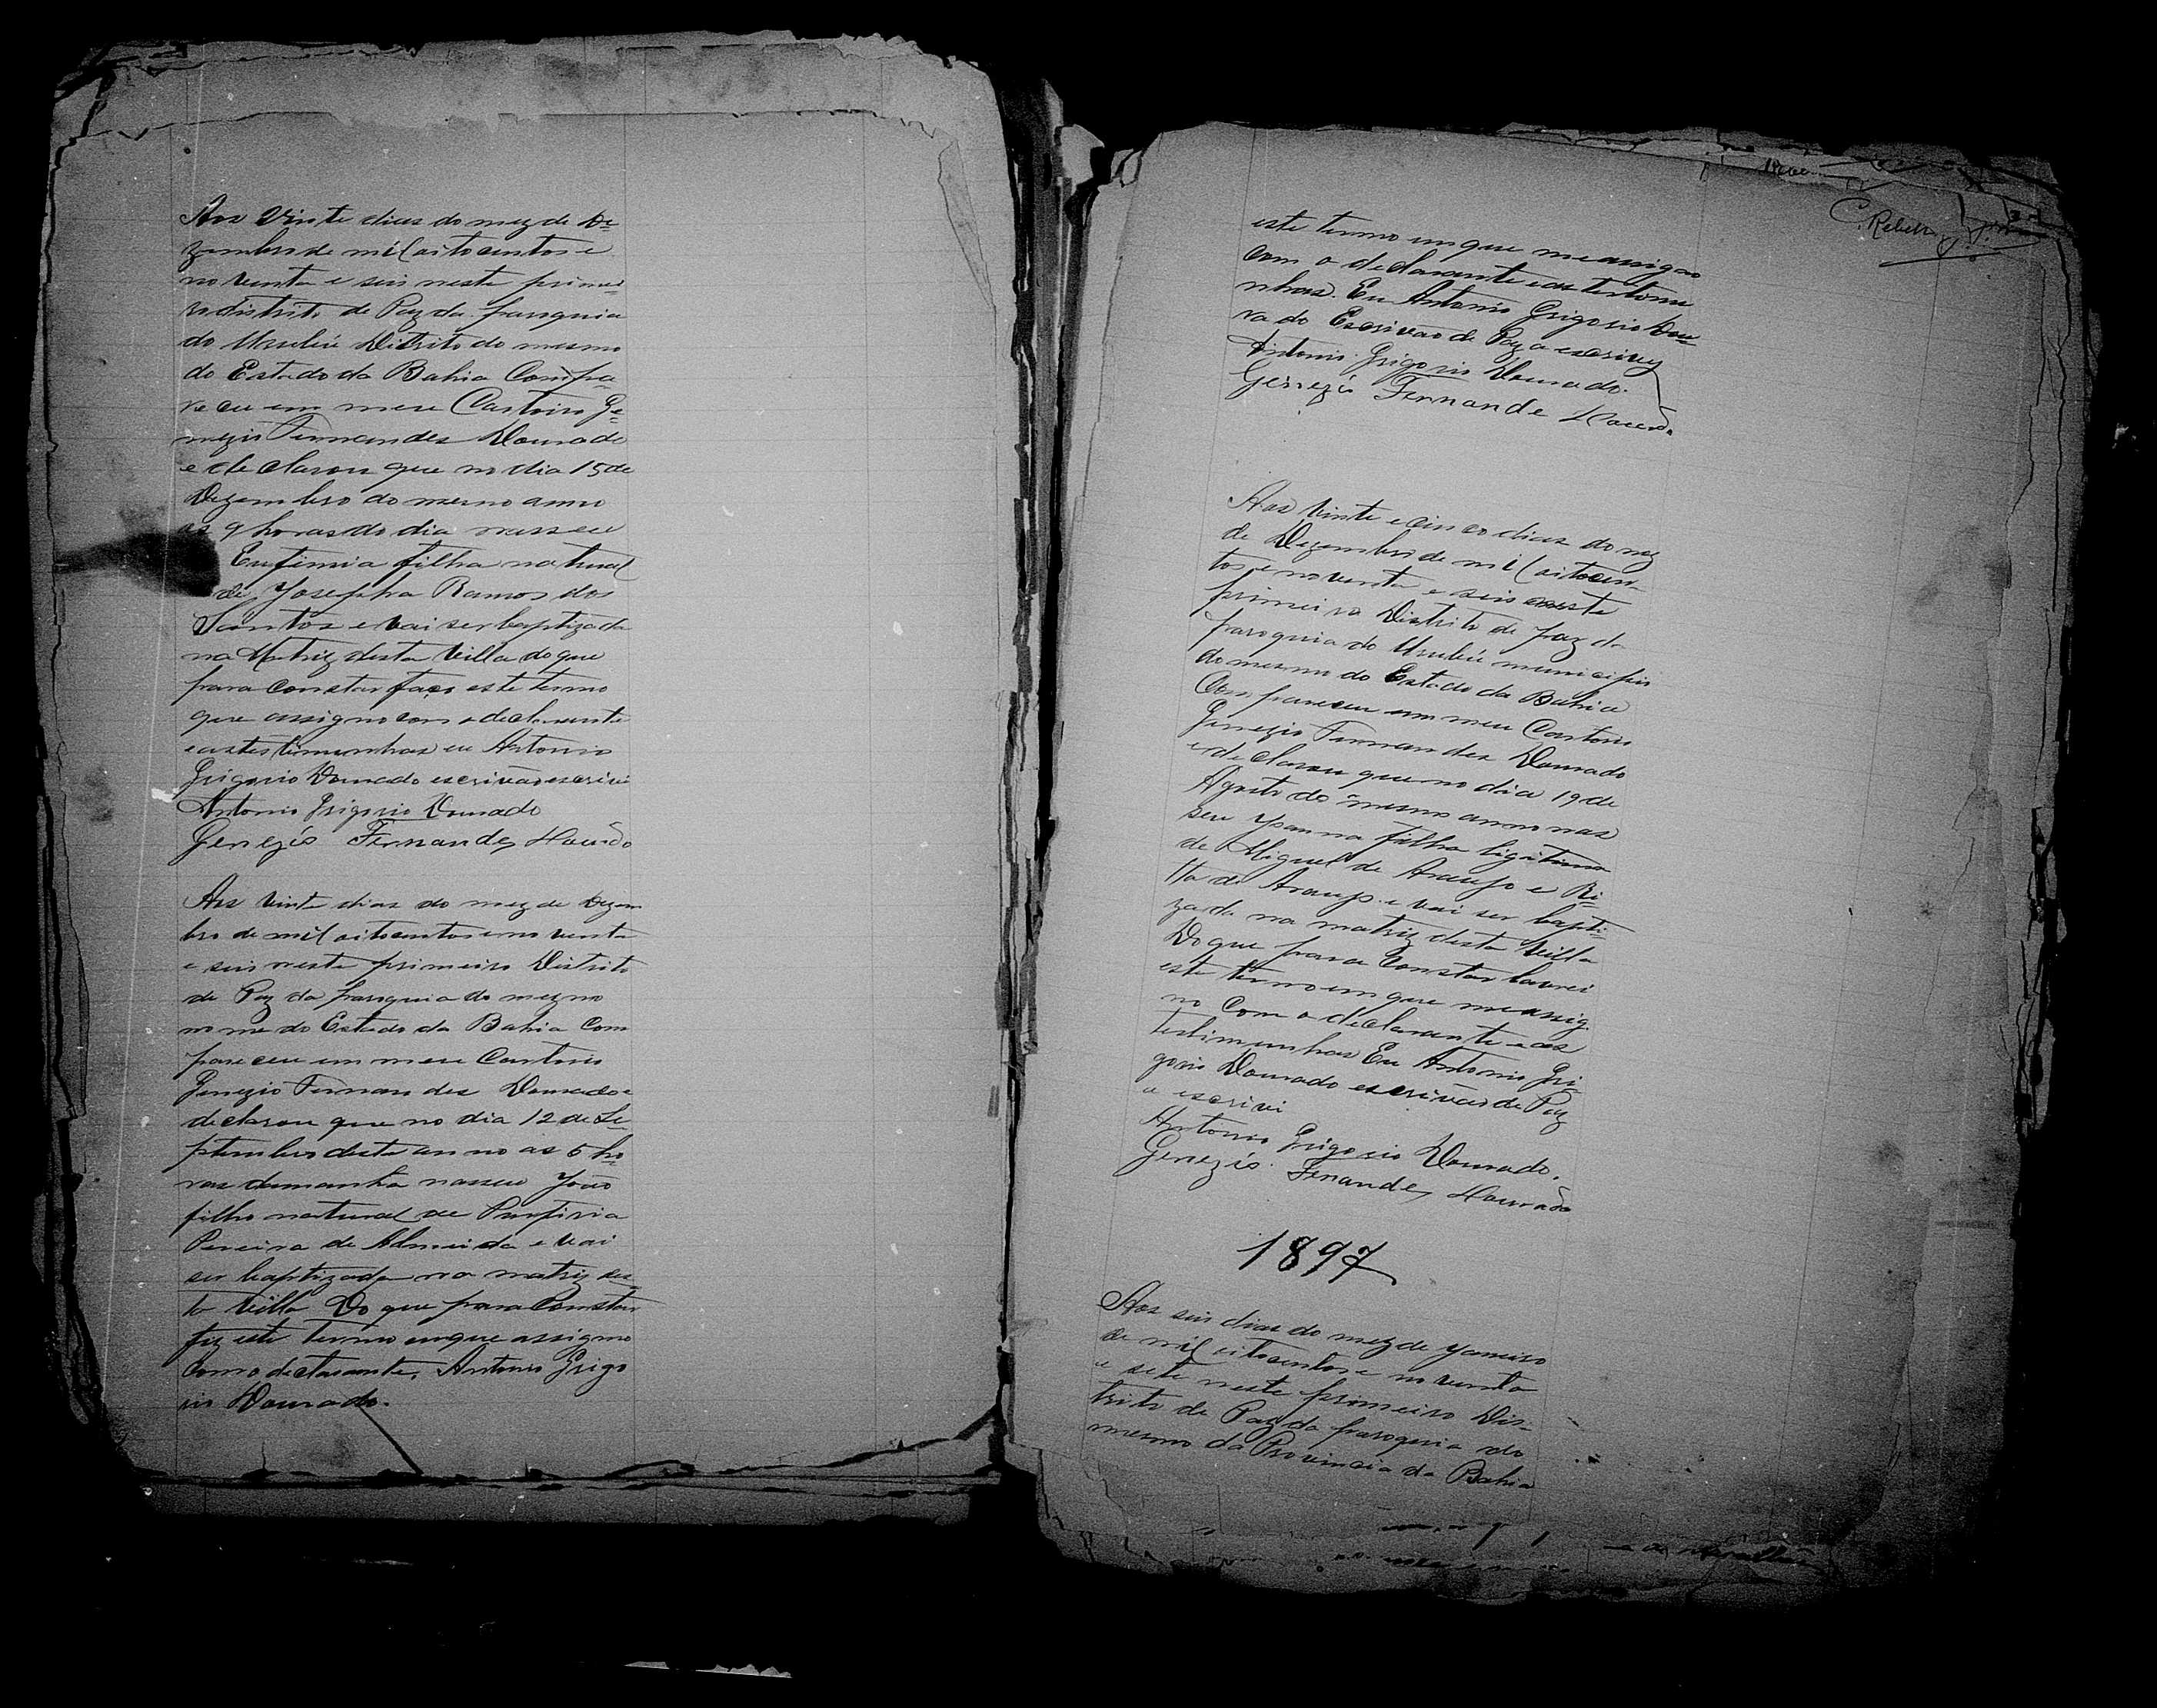 Aos Vinte dias do mez de De=
zembro de mil oitocentos e
noventa e seis neste primei=
ro distrito de Paz da paroquia
do Urubú Distrito do mesmo
do Estado da Bahia Compa=
receu em meu Cartorio Ge=
nezio Fernandes Dourado
e declarou que no dia 15 de
Dezembro do mesmo anno
as 9 horas do dia nasceu
Eufimia filha natural
de Josepha Ramos dos
Santos e vai ser baptizada
na Matriz desta Villa do que
para constar faço este termo
que assigno com o declarante
e as testimunhas eu Antonio
Grigorio Dourado escrivão escrivi
Antonio Grigorio Dourado
Genezio Fernandes Dourado
Aos Vinte dias do mez de Dezem
bro de mil oitocentos e noventa
e seis neste primeiro Distrito
de Paz da paroquia do mezmo
nome do Estado da Bahia Com
pareceu em meu Cartorio
Genezio Fernandes Dourado e
declarou que no dia 12 de Se=
ptembro deste anno as 5 ho=
ras damanha nasceu João
filho natural de Purfiria
Pereira de Almeida e vai
ser baptizada na matriz des
ta Villa Do que para Constar
fiz este termo emque assigno
Com o declarante. Antonio Grigo
rio Dourado.
C. Rebello
este termo em que me assigno
com o declarante e as testimu
nhas. Eu Antonio Grigorio Dou=
rado Escrivão de Paz a escrivy
Antonio Grigorio Dourado.
Genezio Fernande Dourado
Aos Vinte e cinco dias do mez
de Dezembro de mil oitocen=
tos e noventa e seis neste
primeiro Distrito de paz da
paroquia do Urubú municipio
do mesmo do Estado da Bahia
Compareceu em meu Cartorio
Genezio Fernandes Dourado
e declarou que no dia 19 de
Agosto do mesmo anno nas
seu Joanna filha ligitima
de Miguel de Araujo e Ri=
tta de Araujo e vai ser bapti=
zada na matriz desta Villa
Do que para Constar lavrei
este termo em que me assig
no Com o declarante e as
testimunhas Eu Antonio Gri=
gorio Dourado escrivão de Paz
a escrivi
Antonio Grigorio Dourado.
Genezio Fernandes Dourado
1897
Aos seis dias do mez de Janeiro
de mil oitocentos e noventa
e sete neste primeiro Dis=
trito de Paz da paroquia do
mesmo da Provincia da Bahia